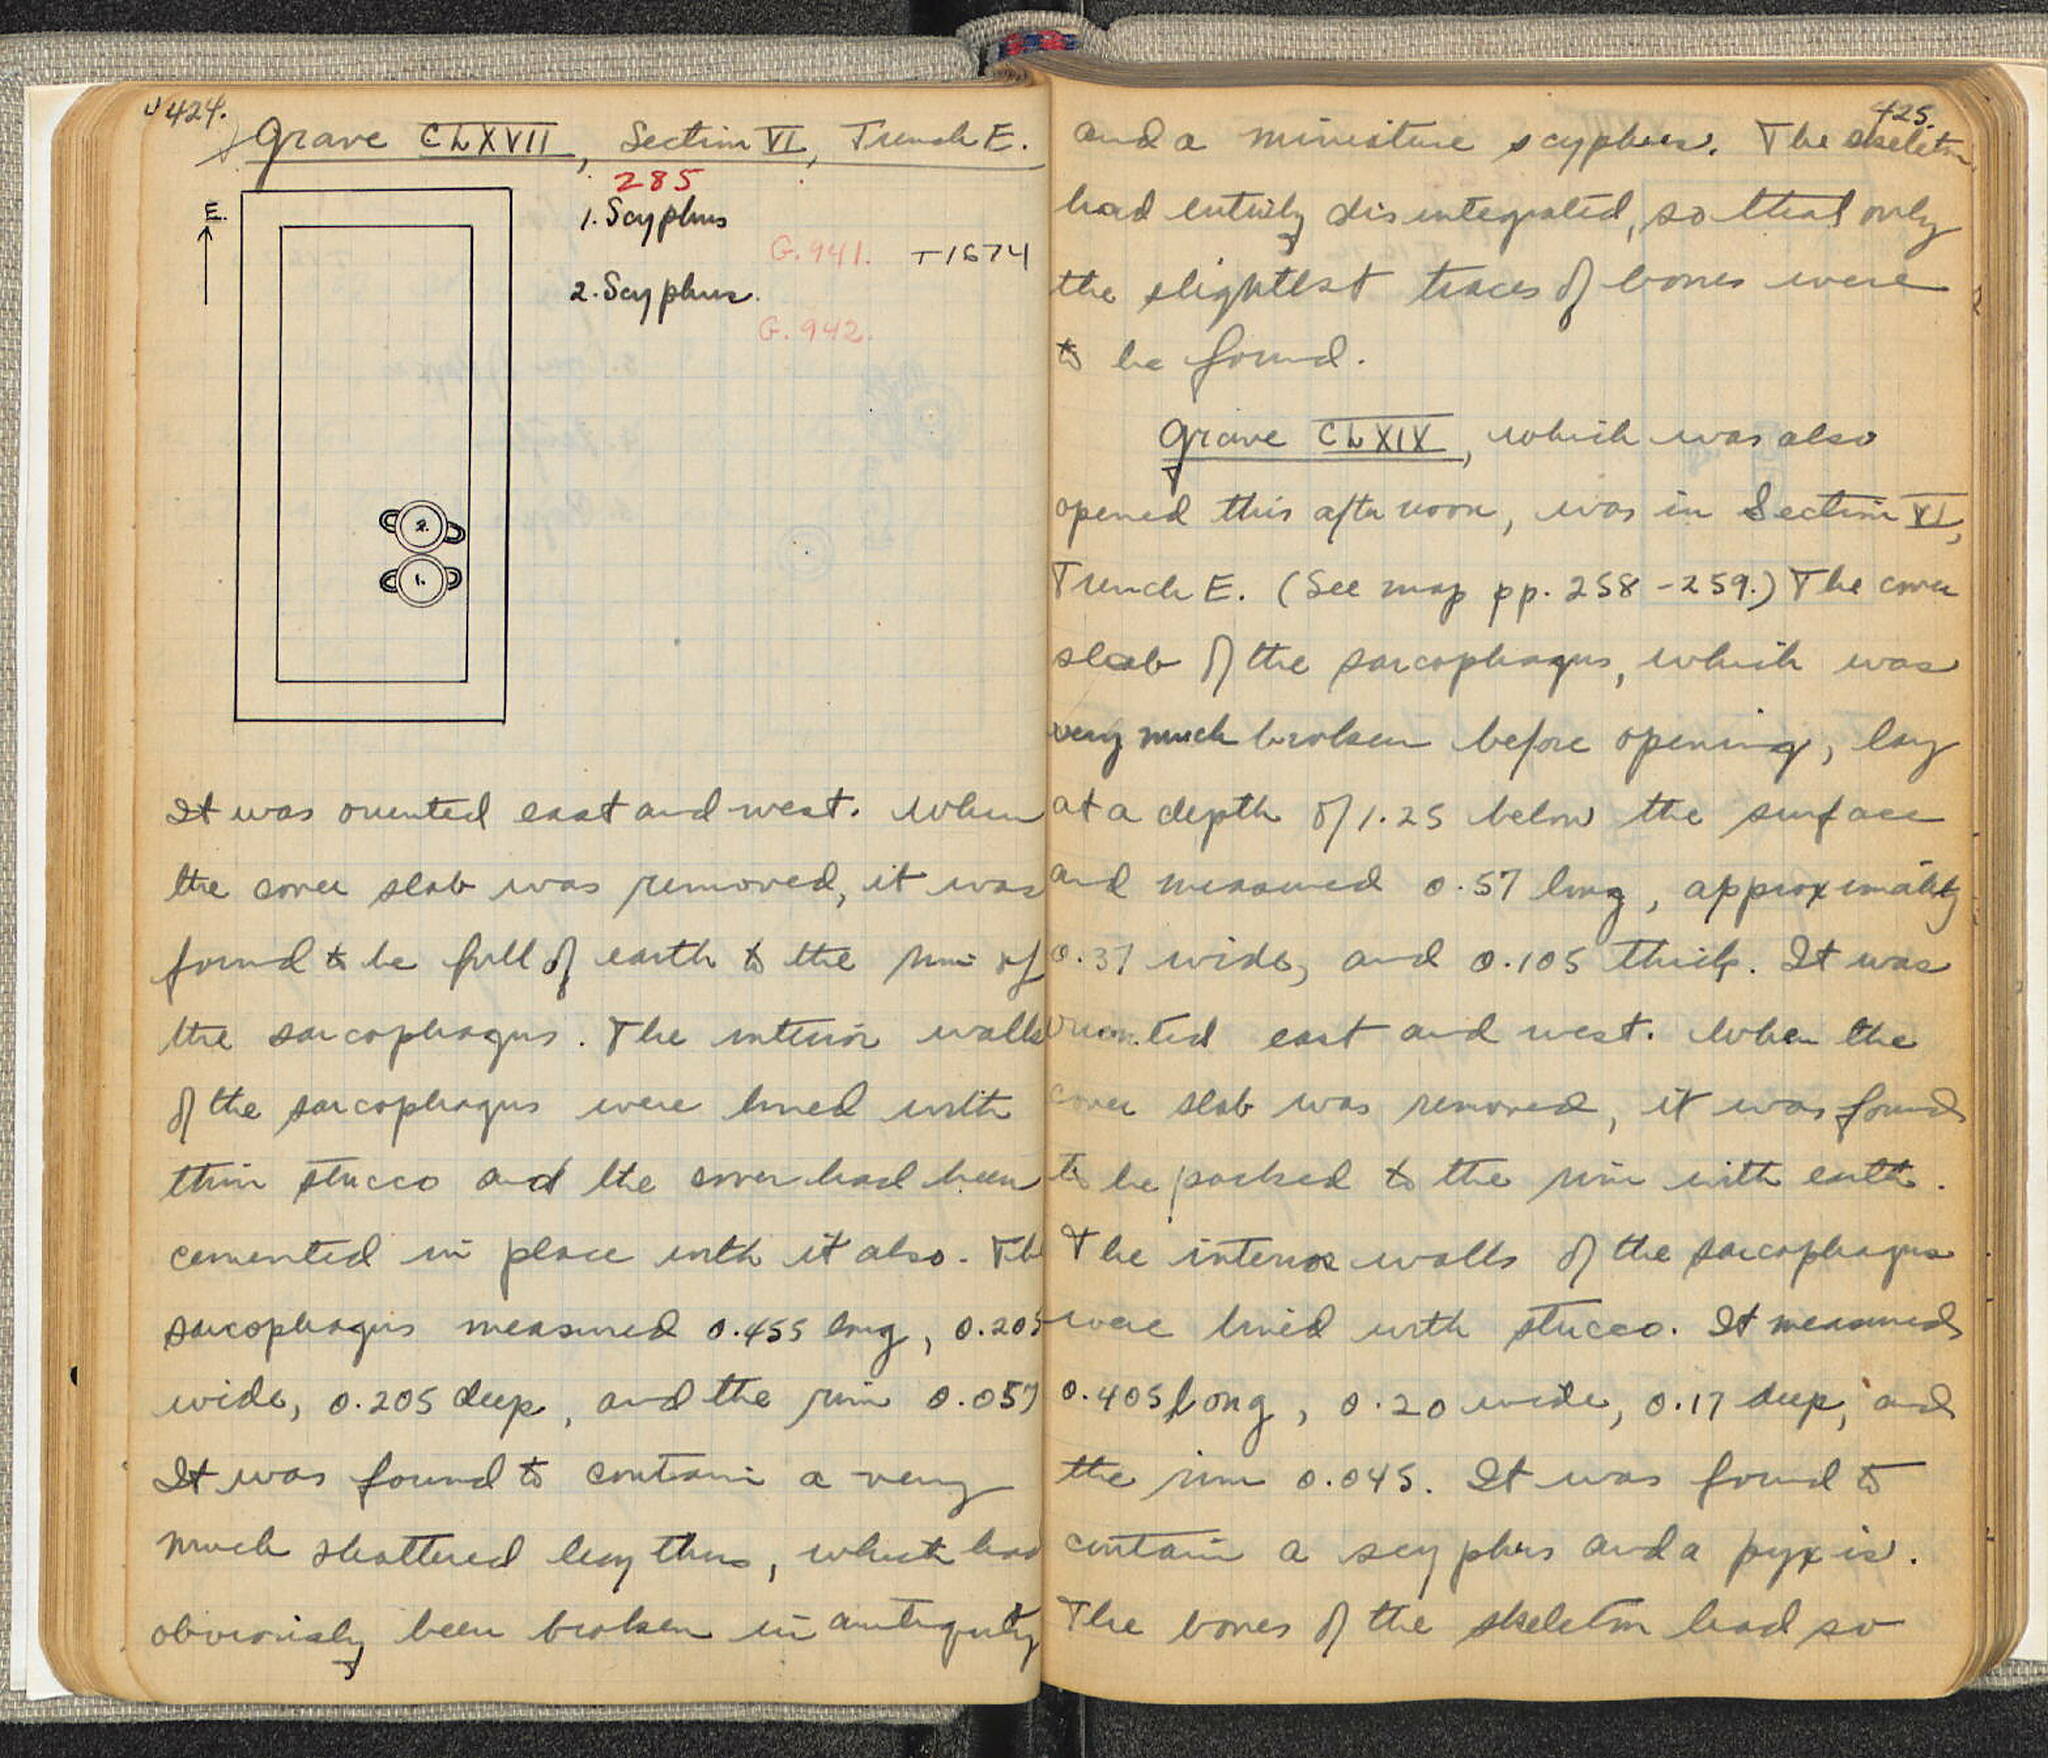 424.
Grave CLXVII, Section VI, Trench E.
285
E.
1. Scyphus
G. 941. T1674
2. Scyphus.
G. 942.
2.
1.
It was oriented east and west. When
the cover slab was removed, it was
found to be full of earth to the rim of
the sarcophagus. The interior walls
of the sarcophagus were lined with
thin stucco and the cover had been
cemented in place with it also. The
sarcophagus measured 0.455 long, 0.205
wide, 0.205 deep, and the rim 0.057
It was found to contain a very
much shattered lecythus, which had
obviously been broken in antiquity
425.
and a miniature scyphus. The skeleton
had entirely disintegrated, so that only
the slightest traces of bones were
to be found.
Grave CLXIX, which was also
opened this afternoon, was in Section VI,
Trench E. (See map pp. 258-259.) The cover
slab of the sarcophagus, which was
very much broken before opening, lay
at a depth of 1.25 below the surface
and measured 0.57 long, approximately
0.37 wide, and 0.105 thick. It was
oriented east and west. When the
cover slab was removed, it was found
to be packed to the rim with earth.
The interior walls of the sarcophagus
were lined with stucco. It measured
0.405 long, 0.20 wide, 0.17 deep, and
the rim 0.045. It was found to
contain a scyphus and a pyxis.
The bones of the skeleton had so